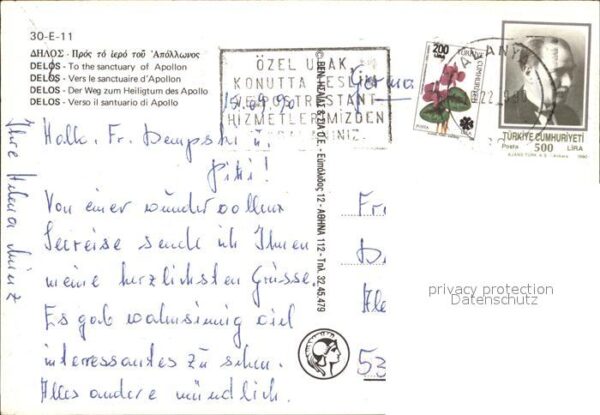 30-E-11
ΔΗΛΟΣ - Πρός τό ἱερό τοῦ Ἀπόλλωνος
DELOS - To the sanctuary of Apollon
DELOS - Vers le sanctuaire d'Apollon
DELOS - Der Weg zum Heiligtum des Apollo
DELOS - Verso il santuario di Apollo
ÖZEL ULAK
KONUTTA TESLİM
VE POSTRESTANT
HİZMETLERİMİZDEN
200
LIRA
TÜRKİYE CUMHURİYETİ
POSTA
TÜRKİYE CUMHURİYETİ
Posta 500 LİRA
AJANS TÜRK A.Ş. - Ankara 1990
15.04.90
Hallo, Fr. Dempski u.
Pitti!
Von einer wundervollen
Seereise sende ich Ihnen
meine herzlichsten Grüsse.
Es gab wahnsinnig viel
interressantes zu sehen.
Alles andere mündlich.
Ihre Helena
Fr
D
Ale
53
ΑΘΗΝΑ 112 - Τηλ. 32.45.479
privacy protection
Datenschutz